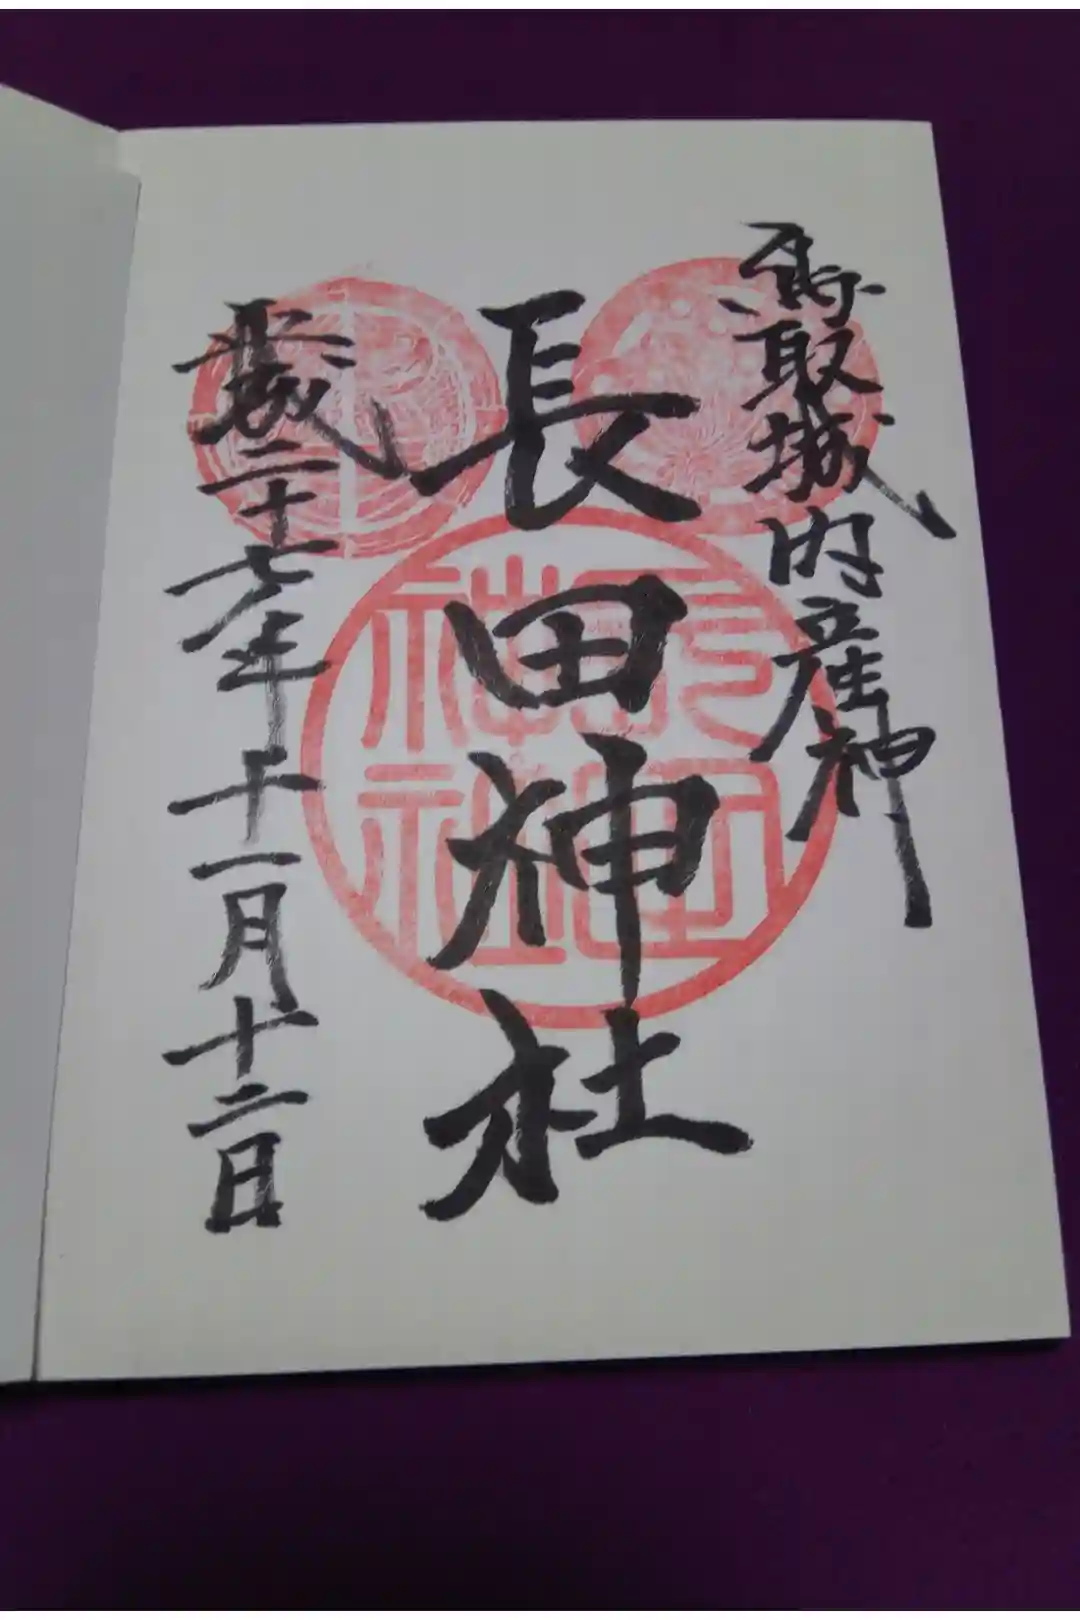 鳥取城内産神
長田神社
平成二十七年十一月十二日
長田神社